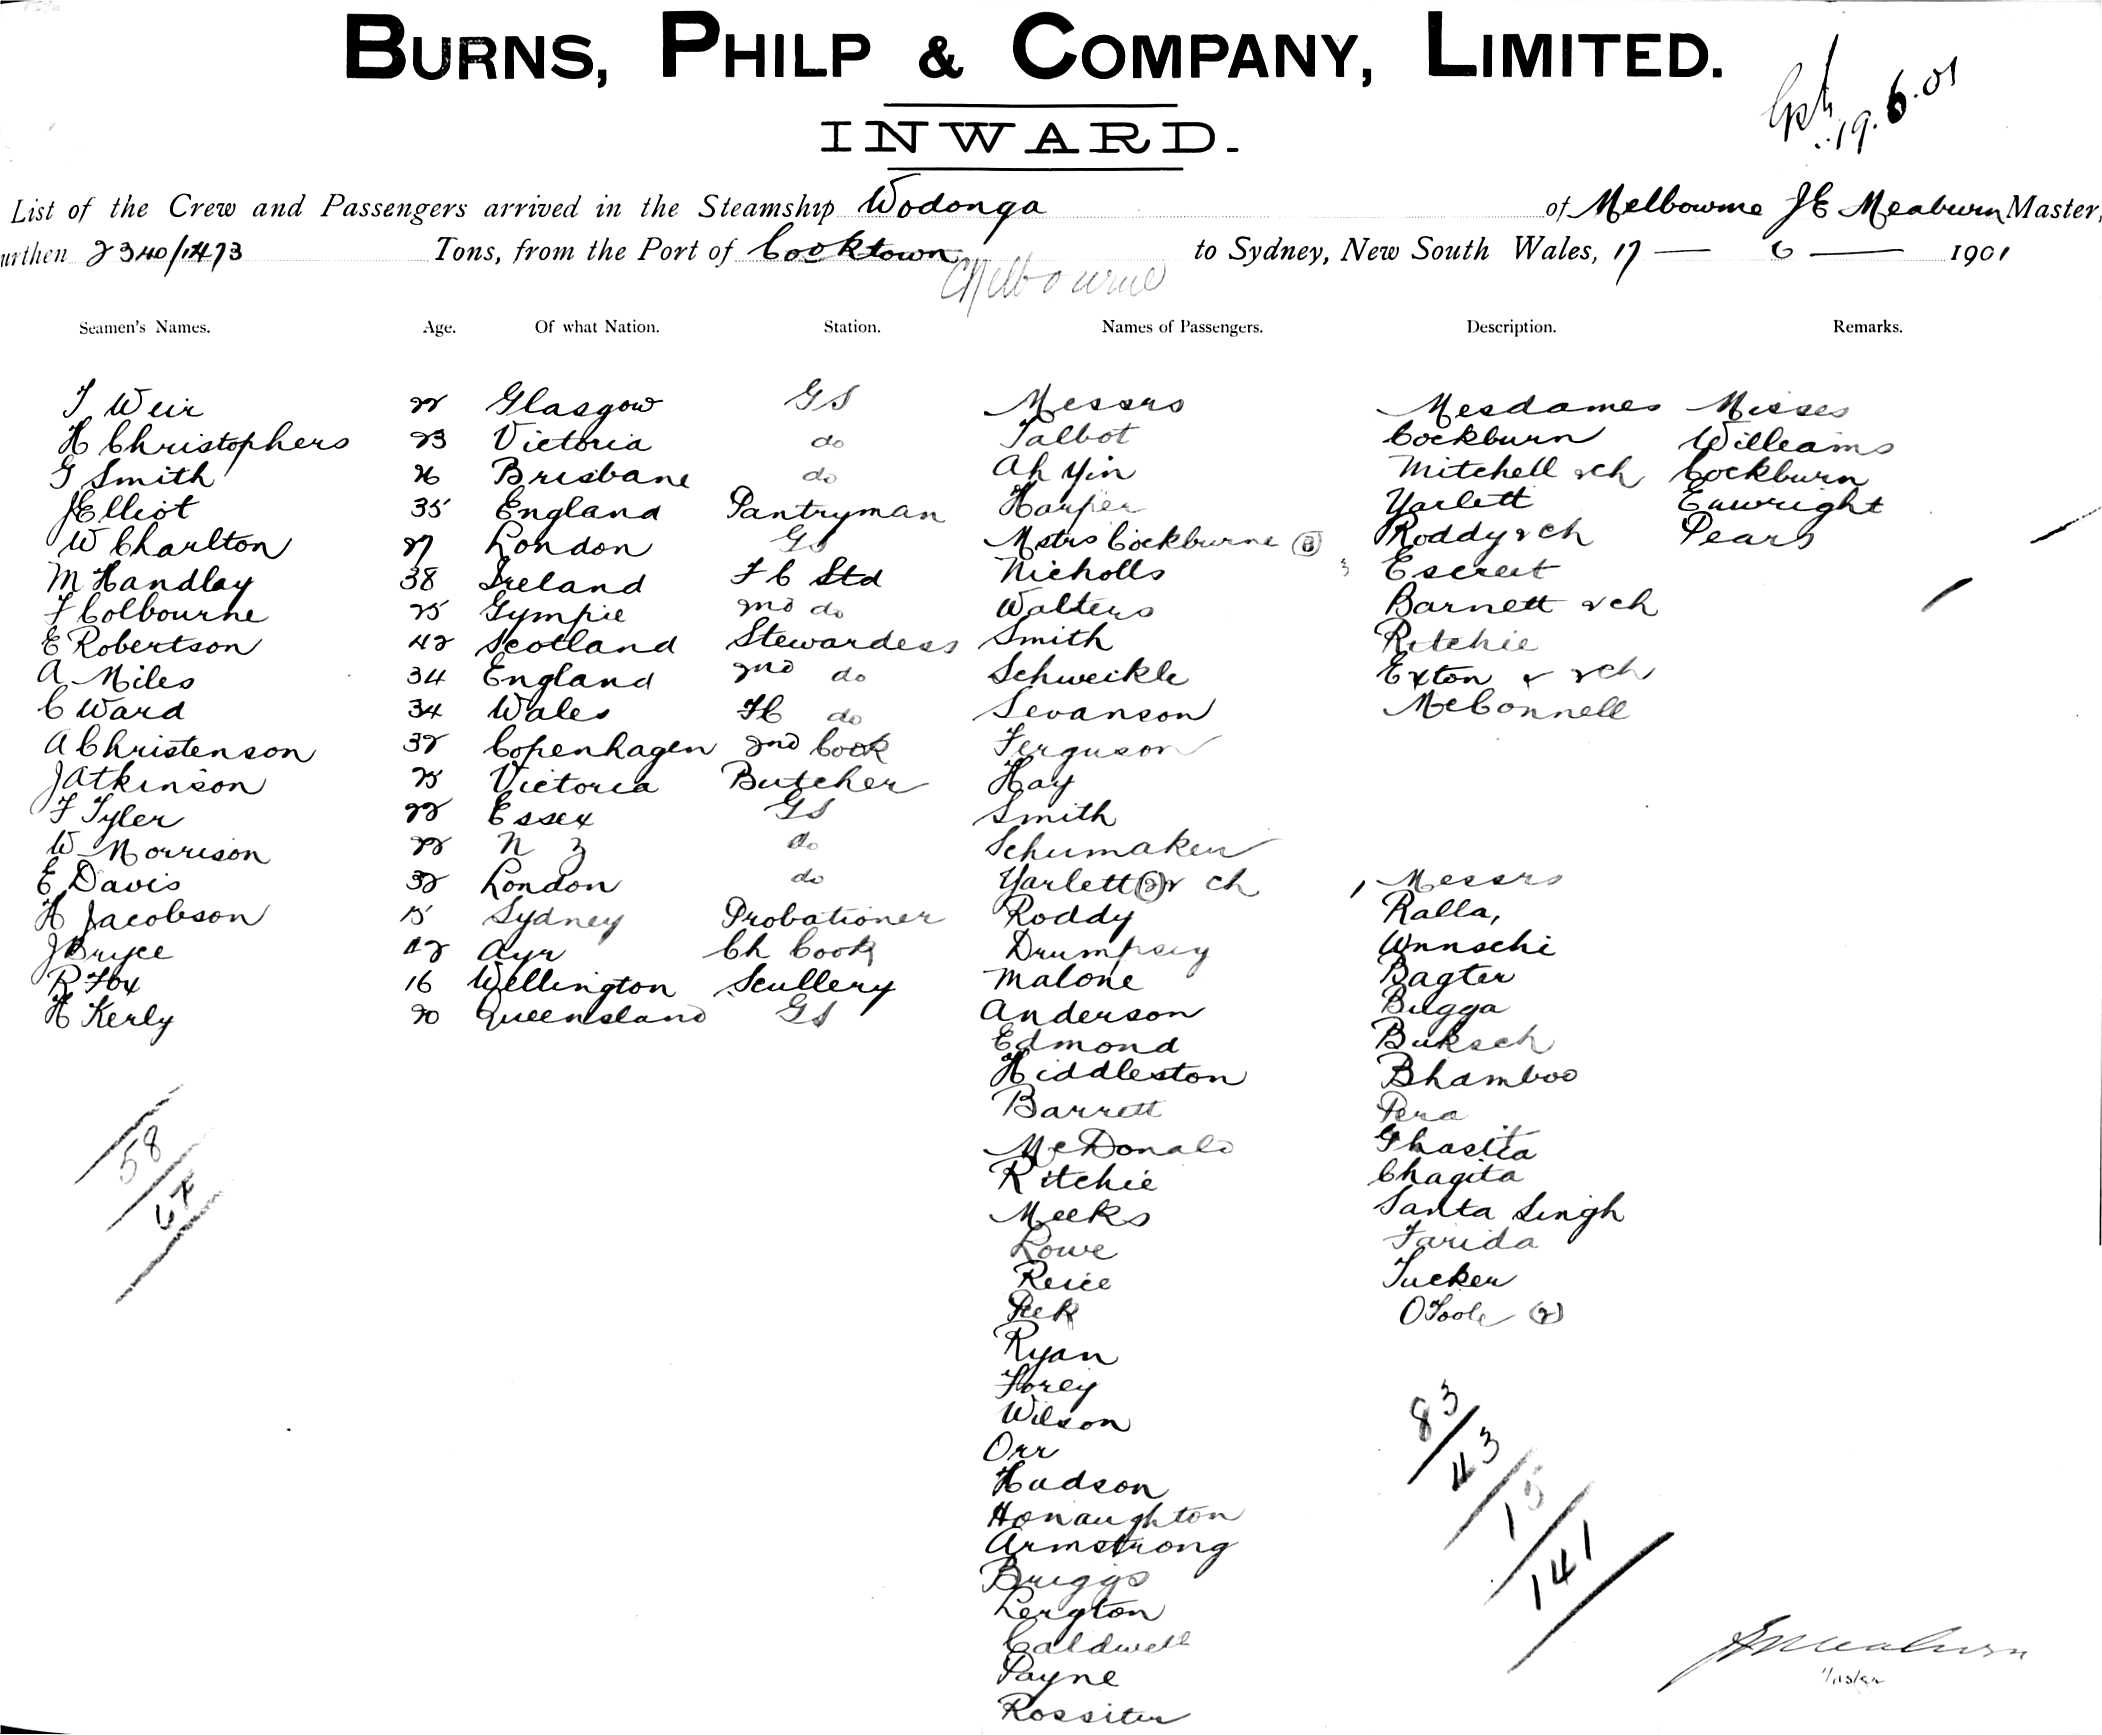 BURNS, PHILP & COMPANY, LIMITED.
19.6.01
INWARD.
List of the Crew and Passengers arrived in the Steamship Wodonga of Melbourne J E Meaburn Master,
urthen 2340/1473 Tons, from the Port of Cooktown to Sydney, New South Wales, 17 — 6 — 1901
Melbourne
Seamen's Names. Age. Of what Nation. Station. Names of Passengers. Description. Remarks.
T Weir 22 Glasgow GS Messrs Mesdames Misses
H Christophers 23 Victoria do Talbot Cockburn Williams
G Smith 26 Brisbane do Ah Yin Mitchell & ch Cockburn
J Elliot 35 England Pantryman Harper Yarlett Enwright
W Charlton 27 London GS Mstrs Cockburne (3) Roddy & ch Pears
M Handlay 38 Ireland F C Std Nicholls Escreet
F Colbourne 25 Gympie 2nd do Walters Barnett & ch
E Robertson 42 Scotland Stewardess Smith Ritchie
A Miles 34 England 2nd do Schweikle Exton & 2 ch
C Ward 34 Wales FC do Sevanson McConnell
A Christenson 32 Copenhagen 2nd Cook Ferguson
J Atkinson 25 Victoria Butcher Hay
F Tyler 22 Essex GS Smith
W Morrison 22 N Z do Schumaker
E Davis 32 London do Yarlett (2) & ch Messrs
H Jacobson 15 Sydney Probationer Roddy Ralla,
J Bryce 42 Ayr Ch Cook Drumpsey Wnnschi
R Fox 16 Wellington Scullery Malone Bagter
H Kerly 20 Queensland GS Anderson Bugga
Edmond Buksch
Hiddleston Bhamboo
Barrett Pera
McDonald Ghasita
Ritchie Chagita
Meeks Santa Singh
Lowe Farida
Reice Tucker
Peek O'Toole (2)
Ryan
Forey
Wilson
Orr
Hudson
Honaughton
Armstrong
Briggs
Lergton
Caldwell
Payne
Rossiter
58
67
83
43
15
141
J E Meaburn
Master